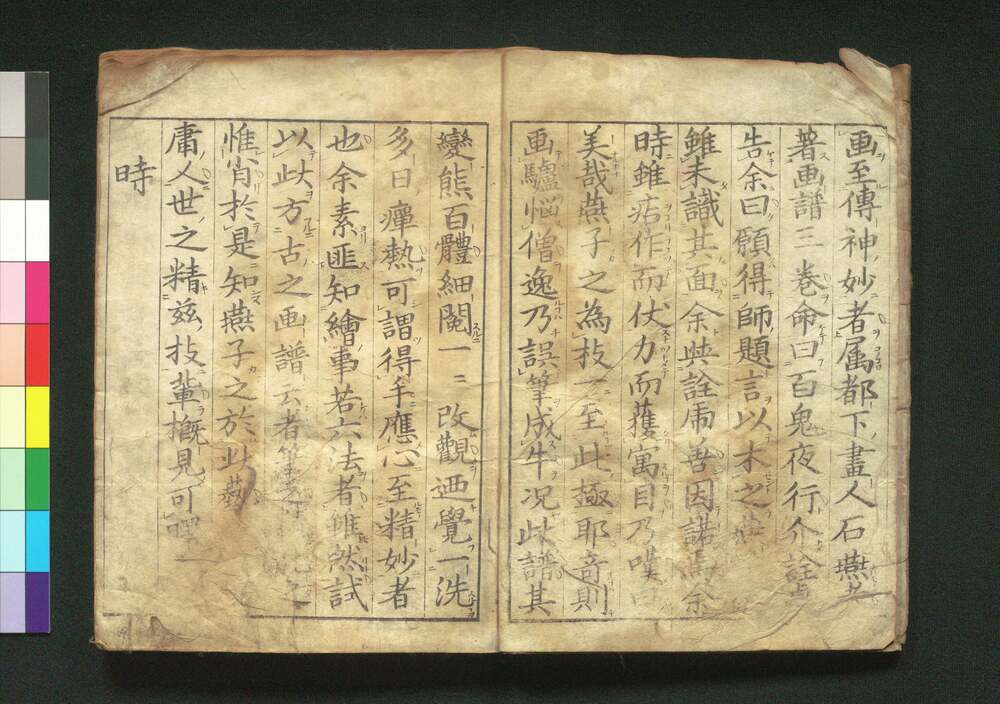 画至傳神妙者属都下畫人石燕
著画譜三巻命曰百鬼夜行介詮
告余曰願得師題言以木之
雖未識其面余與詮甫善因諾焉余
時雖痁作而伏力而獲寓目乃嘆曰
美哉燕子之為技一至此極耶竒則
画驢惱僧逸乃誤筆成牛况此譜其
變態百體細閲一二改觀洒覺一洗
多日癉熱可謂得手應心至精妙者
也余素匪知繪事若六法者雖然試
以此方古之画譜云者
惟肖於是知燕子之於此藝
庸人世之精兹技輩概見可
時